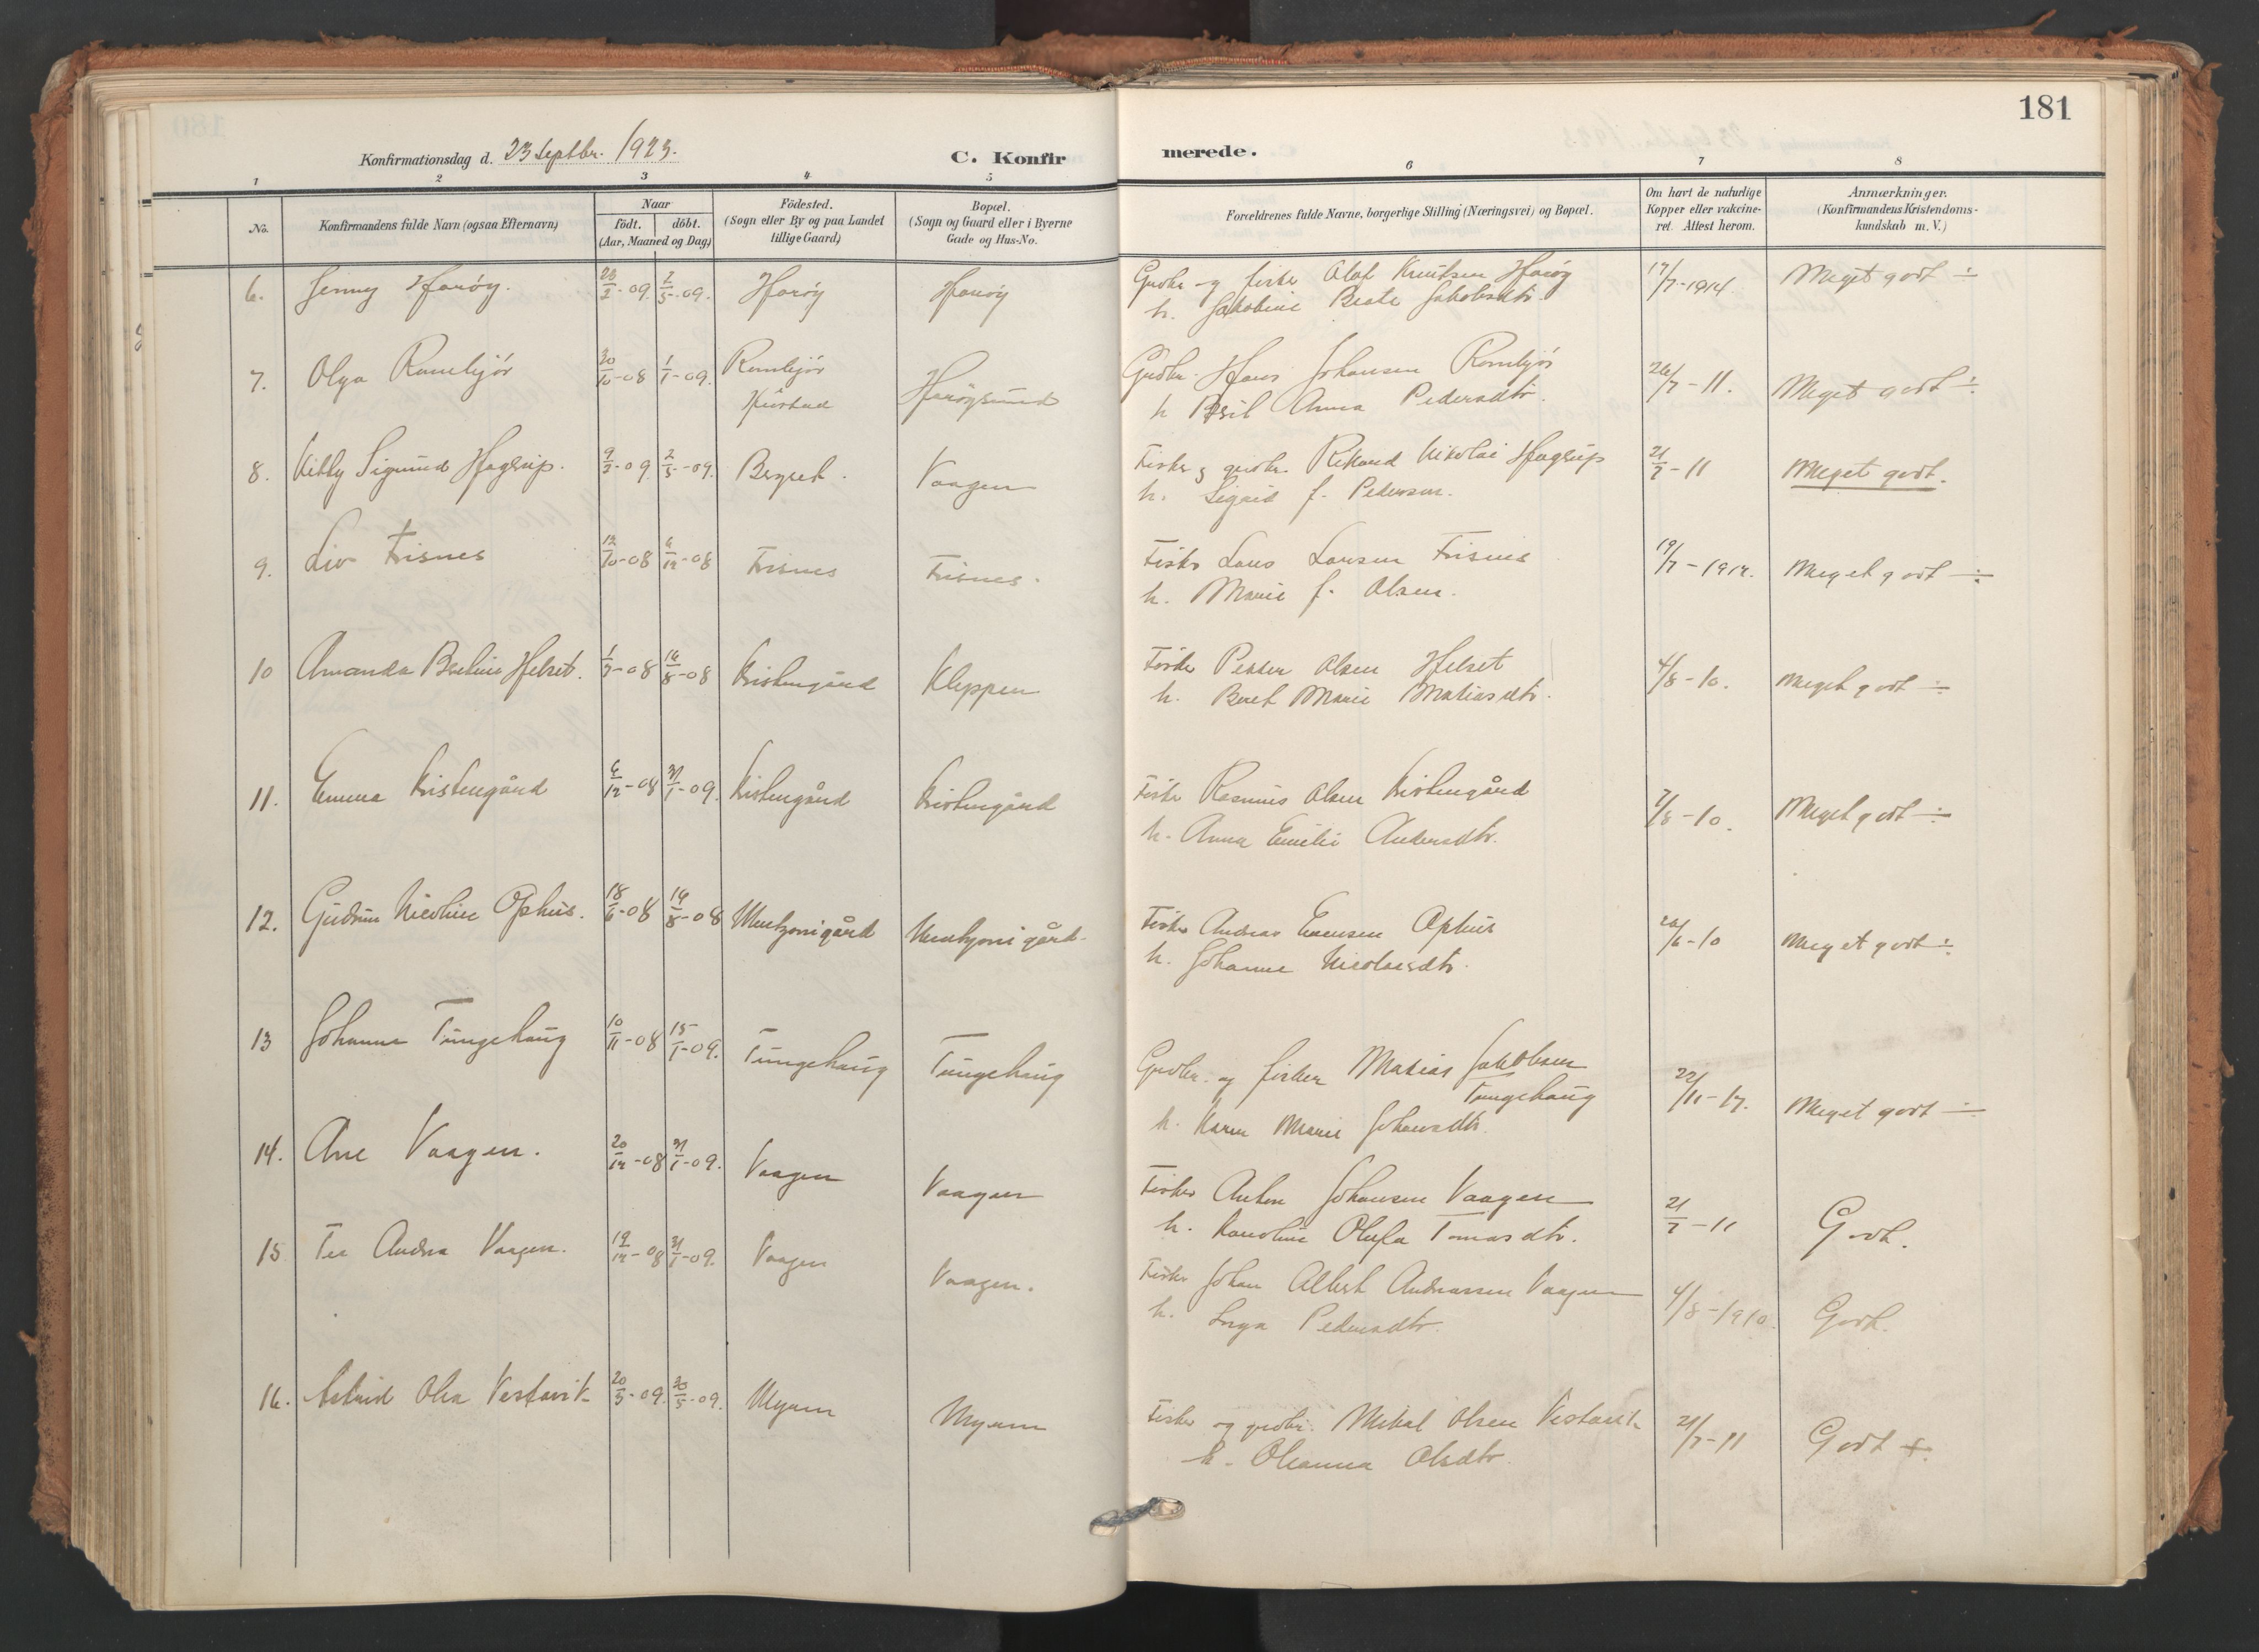 181
Konfirmationsdag d. 23 Septbr. 1923.
C. Konfirmerede.
1 2 3 4 5 6 7 8
No.
Konfirmandens fulde Navn (ogsaa Efternavn)
Naar
födt. döbt.
(Aar, Maaned og Dag)
Födested.
(Sogn eller By og paa Landet
tillige Gaard)
Bopæl.
(Sogn og Gaard eller i Byerne
Gade og Hus-No.
Forældrenes fulde Navne, borgerlige Stilling (Næringsvei) og Bopæl.
Om havt de naturlige
Kopper eller vakcine-
ret. Attest herom.
Anmærkninger.
(Konfirmandens Kristendoms-
kundskab m. V.)
6. Jenny Harøy. 2/5-09. Harøy Harøy Grdbr. og fisker Olaf Knutsen Harøy 17/7-1914 Meget godt ÷
h. Jakobine Beate Jakobsdtr.
7. Olga Romlejör 30/10-08 1/1-09. Romlejör Harøysund Grdbr. Hans Johansen Romlejör 26/7-11. Meget godt ÷
Hustad h Anna Pedersdtr.
8. Kitty Sigrund Hagerup. 9/2-09 2/5-09. Berget. Vaagen Fisker & grdbr. Rikard Nikolai Hagerup 21/7-11 Meget godt.
h. Sigrid f. Pedersen.
9. Liv Trisnes 12/10-08 6/12-08 Trisnes Trisnes. Fisker Lars Larsen Trisnes 19/7-1912. Meget godt ÷
h. Marie f. Olsen.
10 Amanda Berline Helset. 1/7-08 16/8-08 Kristengård Kleppen Fisker Petter Olsen Helset 4/8-10. Meget godt ÷
h. Beret Marie Matiasdtr.
11. Emma Kristengård 6/12-08 31/1-09. Kristengård Kristengård Fisker Rasmus Olsen Kristengård 7/8-10. Meget godt ÷
h. Anna Emilie Andersdtr.
12. Gudrun Nicoline Ophus. 18/6-08 16/8-08 Mentzonigård Mentzonigård. Fisker Andreas Evensen Ophus 20/6-10 Meget godt ÷
h. Johanne Nicolaisdtr.
13 Johanna Tungehaug 10/11-08 15/1-09. Tungehaug Tungehaug Grdbr. og fisker Matias Jakobsen 22/11-17. Meget godt ÷
Tungehaug
h. Karen Marie Johansdtr.
14. Ane Vaagen. 20/12-08 31/1-09. Vaagen Vaagen Fisker Anton Johansen Vaagen 21/7-11 Godt.
h. Karoline Olufa Tomasdtr.
15 Andrea Vaagen. 19/12-08 31/1-09. Vaagen Vaagen. Fisker Johan Albert Andreassen Vaagen 4/8-1910. Godt.
h. Inga Pedersdtr.
16. Astrid Olea Vestavik 20/3-09. 30/5-09. Myren Myren Fisker og grdbr. Mikal Olsen Vestavik 21/7-11 Godt +.
h. Oleanna Olsdtr.